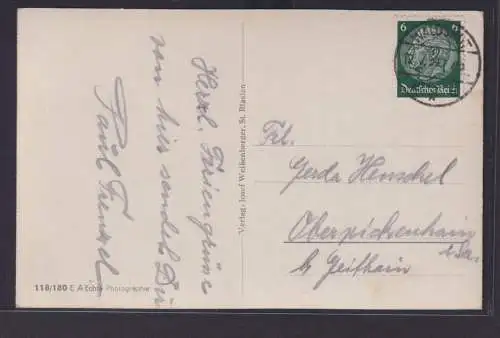 Herzl. Feriengrüsse
von hier sendet Dir
Paul Frenzel
118/180 E. A Echte Photographie
Verlag: Josef Weißenberger, St. Blasien
6 6
Deutsches Reich
Frl.
Gerda Henschel
Oberpickenhain
i. Sa.
b. Geithain